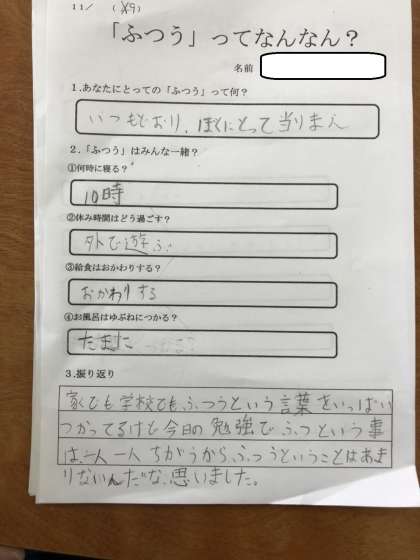 11/ (
「ふつう」ってなんなん？
名前
1.あなたにとっての「ふつう」って何？
いつもどおり、ぼくにとって当りまえ
2.「ふつう」はみんな一緒？
①何時に寝る？
10時
②休み時間はどう過ごす？
外で遊ぶ
③給食はおかわりする？
おかわりする
④お風呂はゆぶねにつかる？
たまに
3.振り返り
家でも学校でも、ふつうという言葉をいっぱい
つかってるけど今日の勉強で、ふつという事
は、一人一人ちがうから、ふつうということはあま
りないんだな、思いました。